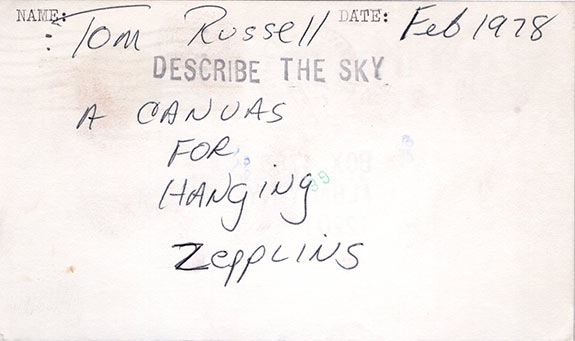 NAME: Tom Russell DATE: Feb 1978
DESCRIBE THE SKY
A CANVAS
FOR
HANgINg
ZeppLINS